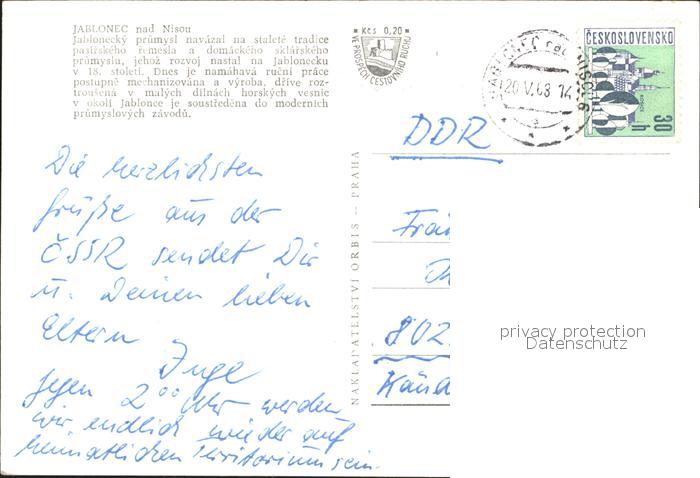 JABLONEC nad Nisou
Jablonecký průmysl navázal na staleté tradice
pasířského řemesla a domáckého sklářského
průmyslu, jehož rozvoj nastal na Jablonecku
v 18. století. Dnes je namáhavá ruční práce
postupně mechanizována a výroba, dříve roz-
troušená v malých dílnách horských vesnic
v okolí Jablonce je soustředěna do moderních
průmyslových závodů.
Kčs 0,20
VE PROSPĚCH CESTOVNÍHO RUCHU
20.V.68-14
ČESKOSLOVENSKO
30 h
DDR
Die herzlichsten
Grüße aus der
ČSSR sendet Dir
u. Deinen lieben
Eltern
Inge
Gegen 2⁰⁰ Uhr werden
wir endlich wieder auf
heimatlichen Territorium sein.
NAKLADATELSTVÍ ORBIS — PRAHA
802
privacy protection
Datenschutz